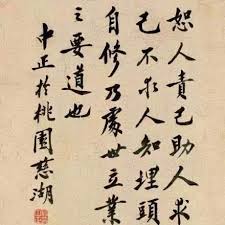 恕人責己助人求
己不求人知埋頭
自修乃處世立業
之要道也
中正於桃園慈湖